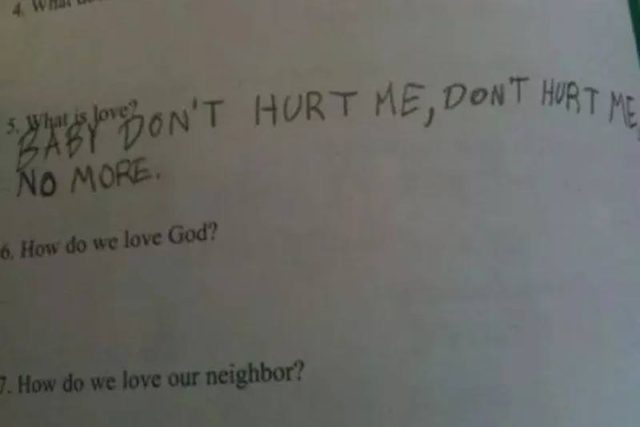 5. What is love?
BABY DON'T HURT ME, DON'T HURT ME,
NO MORE.
6. How do we love God?
7. How do we love our neighbor?